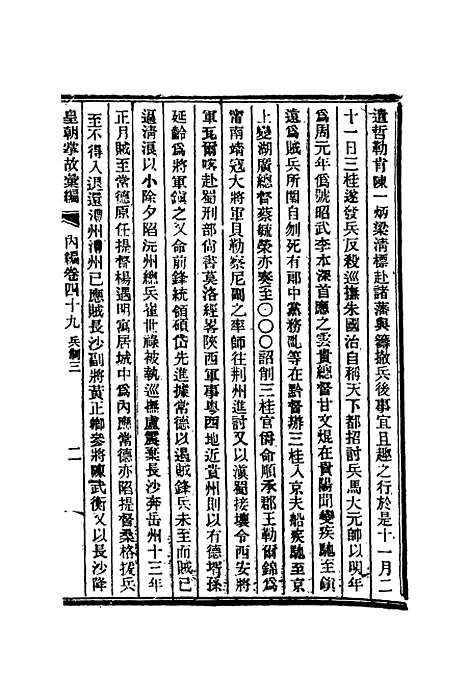 遣哲勒肯陳一炳梁清標赴諸藩與籌撤兵後事宜且趣之行於是十一月二
十一日三桂遂發兵反殺巡撫朱國治自稱天下都招討兵馬大元帥以明年
為周元年偽號昭武李本深首應之雲貴總督甘文焜在貴陽聞變疾馳至鎮
遠為賊兵所圍自刎死有郎中党務禮等在黔督辦三桂入京夫船疾馳至京
上變湖廣總督蔡毓榮亦奏至〇〇〇詔削三桂官爵命順承郡王勒爾錦為
甯南靖寇大將軍貝勒察尼副之率師往荆州進討又以滇蜀接壤令西安將
軍瓦爾喀赴蜀刑部尚書莫洛經畧陝西軍事粵西地近貴州則以有德壻孫
延齡為將軍鎮之又命前鋒統領碩岱先進據常德以遏賊鋒兵未至而賊已
逼清浪以小除夕陷沅州總兵崔世祿被執巡撫盧震棄長沙奔岳州十三年
正月賊至常德原任提督楊遇明寓居城中為內應常德亦陷提督桑格拔兵
至不得入退還澧州澧州已應賊長沙副將黃正卿參將陳武衡又以長沙降
皇朝掌故彙編 內編卷四十九 兵制三 二